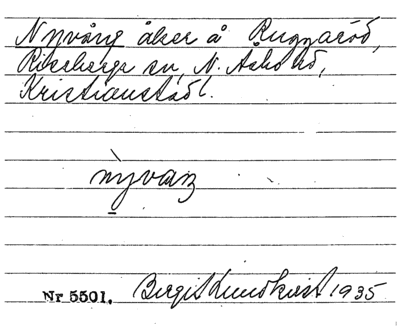 Nyvång åker å Ruggaröd,
Riseberga sn, N. Åsbo hd,
Kristianstads l.
nỳvaŋ
Nr 5501. Birgit Lundkvist 1935